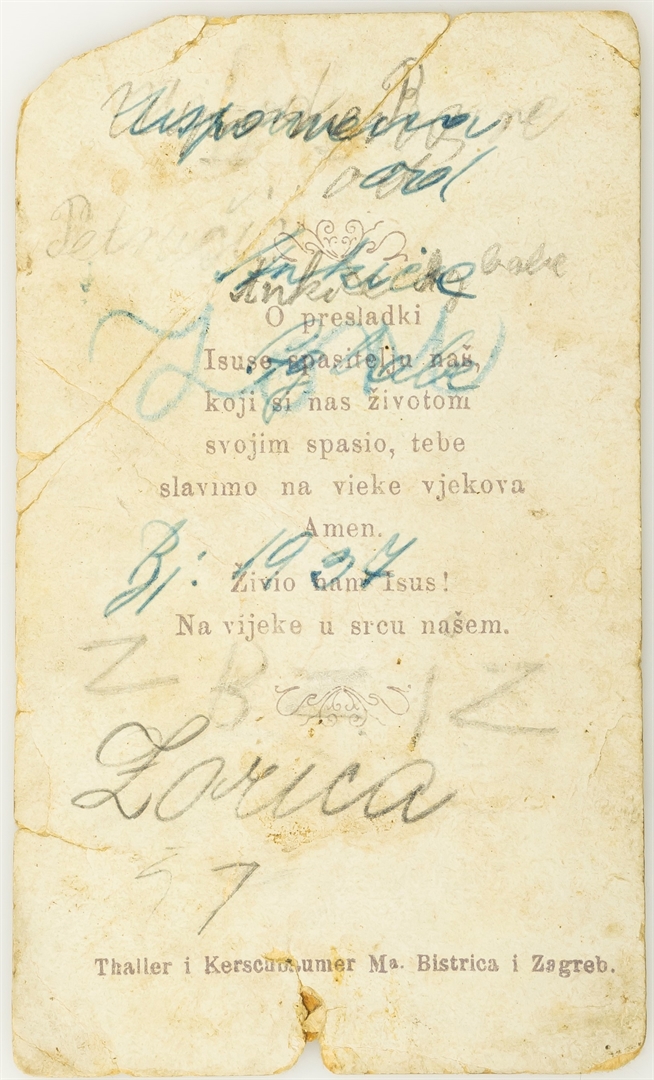 Uspomena
od
Ankice
babe
O presladki
Isuse spasitelju naš,
koji si nas životom
svojim spasio, tebe
slavimo na vieke vjekova
Amen.
Bj. 1937
Živio nam Isus!
Na vijeke u srcu našem.
Z B - 1 Z
Zorica
Thaller i Kerschbaumer Ma. Bistrica i Zagreb.